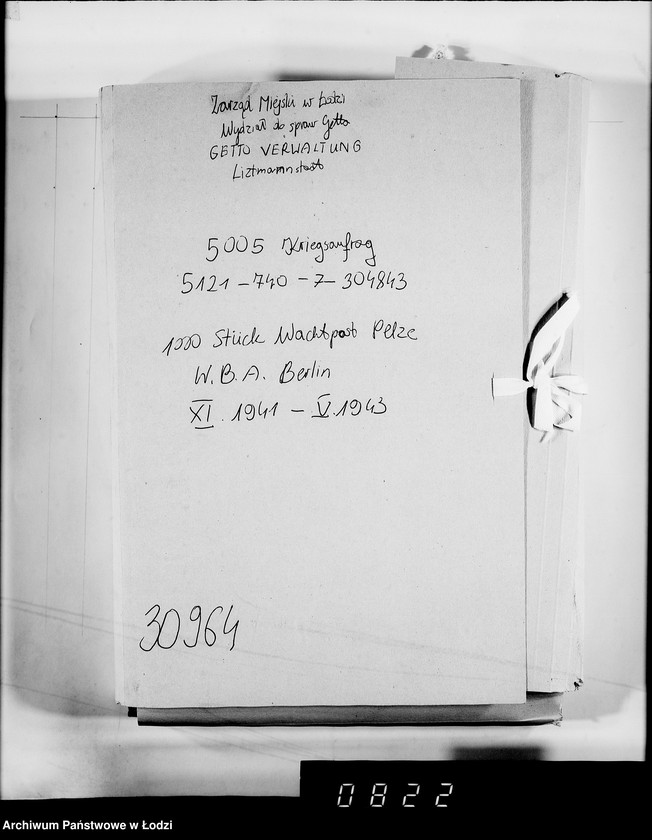 Zarząd Miejski w Łodzi
Wydział do spraw Getta
GETTO VERWALTUNG
Liztmannstadt
5005 Kriegsauftrag
5121 - 740 - 7 - 304843
1000 Stück Wachtpost Pelze
W.B.A. Berlin
XI. 1941 - V. 1943
30964
0822
Archiwum Państwowe w Łodzi